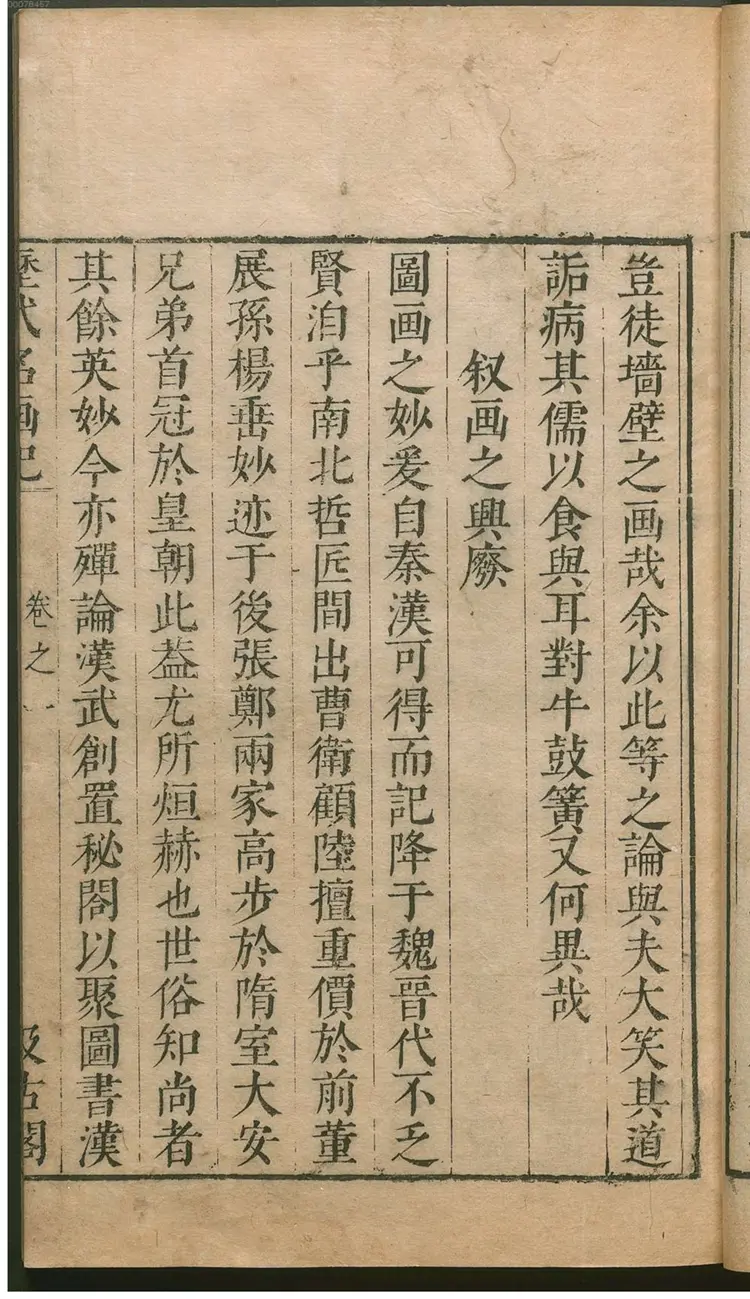 豈徒墻壁之画哉余以此等之論與夫大笑其道
詬病其儒以食與耳對牛鼓簧又何異哉
叙画之興廢
圖画之妙爰自秦漢可得而記降于魏晉代不乏
賢洎乎南北哲匠間出曹衛顧陸擅重價於前董
展孫楊垂妙迹于後張鄭兩家高步於隋室大安
兄弟首冠於皇朝此葢尤所烜赫也世俗知尚者
其餘英妙今亦殫論漢武創置秘閣以聚圖書漢
歷代名画記 卷之一 汲古閣
00078457